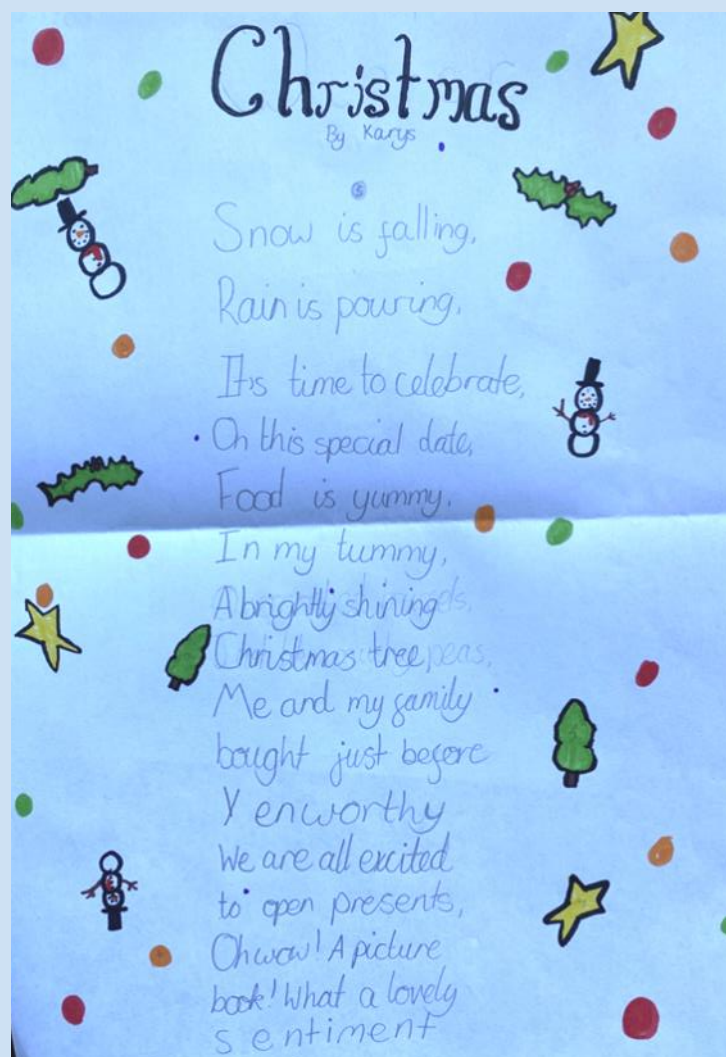 Christmas
By Karys
Snow is falling,
Rain is pouring,
It's time to celebrate,
On this special date,
Food is yummy,
In my tummy,
A brightly shining
Christmas tree peas,
Me and my family
bought just before
Yenworthy
We are all excited
to open presents,
Oh wow! A picture
book! What a lovely
sentiment